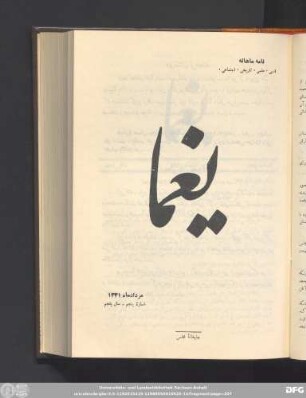 نامه ماهانه
ادبی، علمی، تاریخی، اجتماعی
یغما
مردادماه ۱۳۳۱
شمارهٔ پنجم - سال پنجم
چاپخانهٔ مجلس
Universitäts- und Landesbibliothek Sachsen-Anhalt
DFG